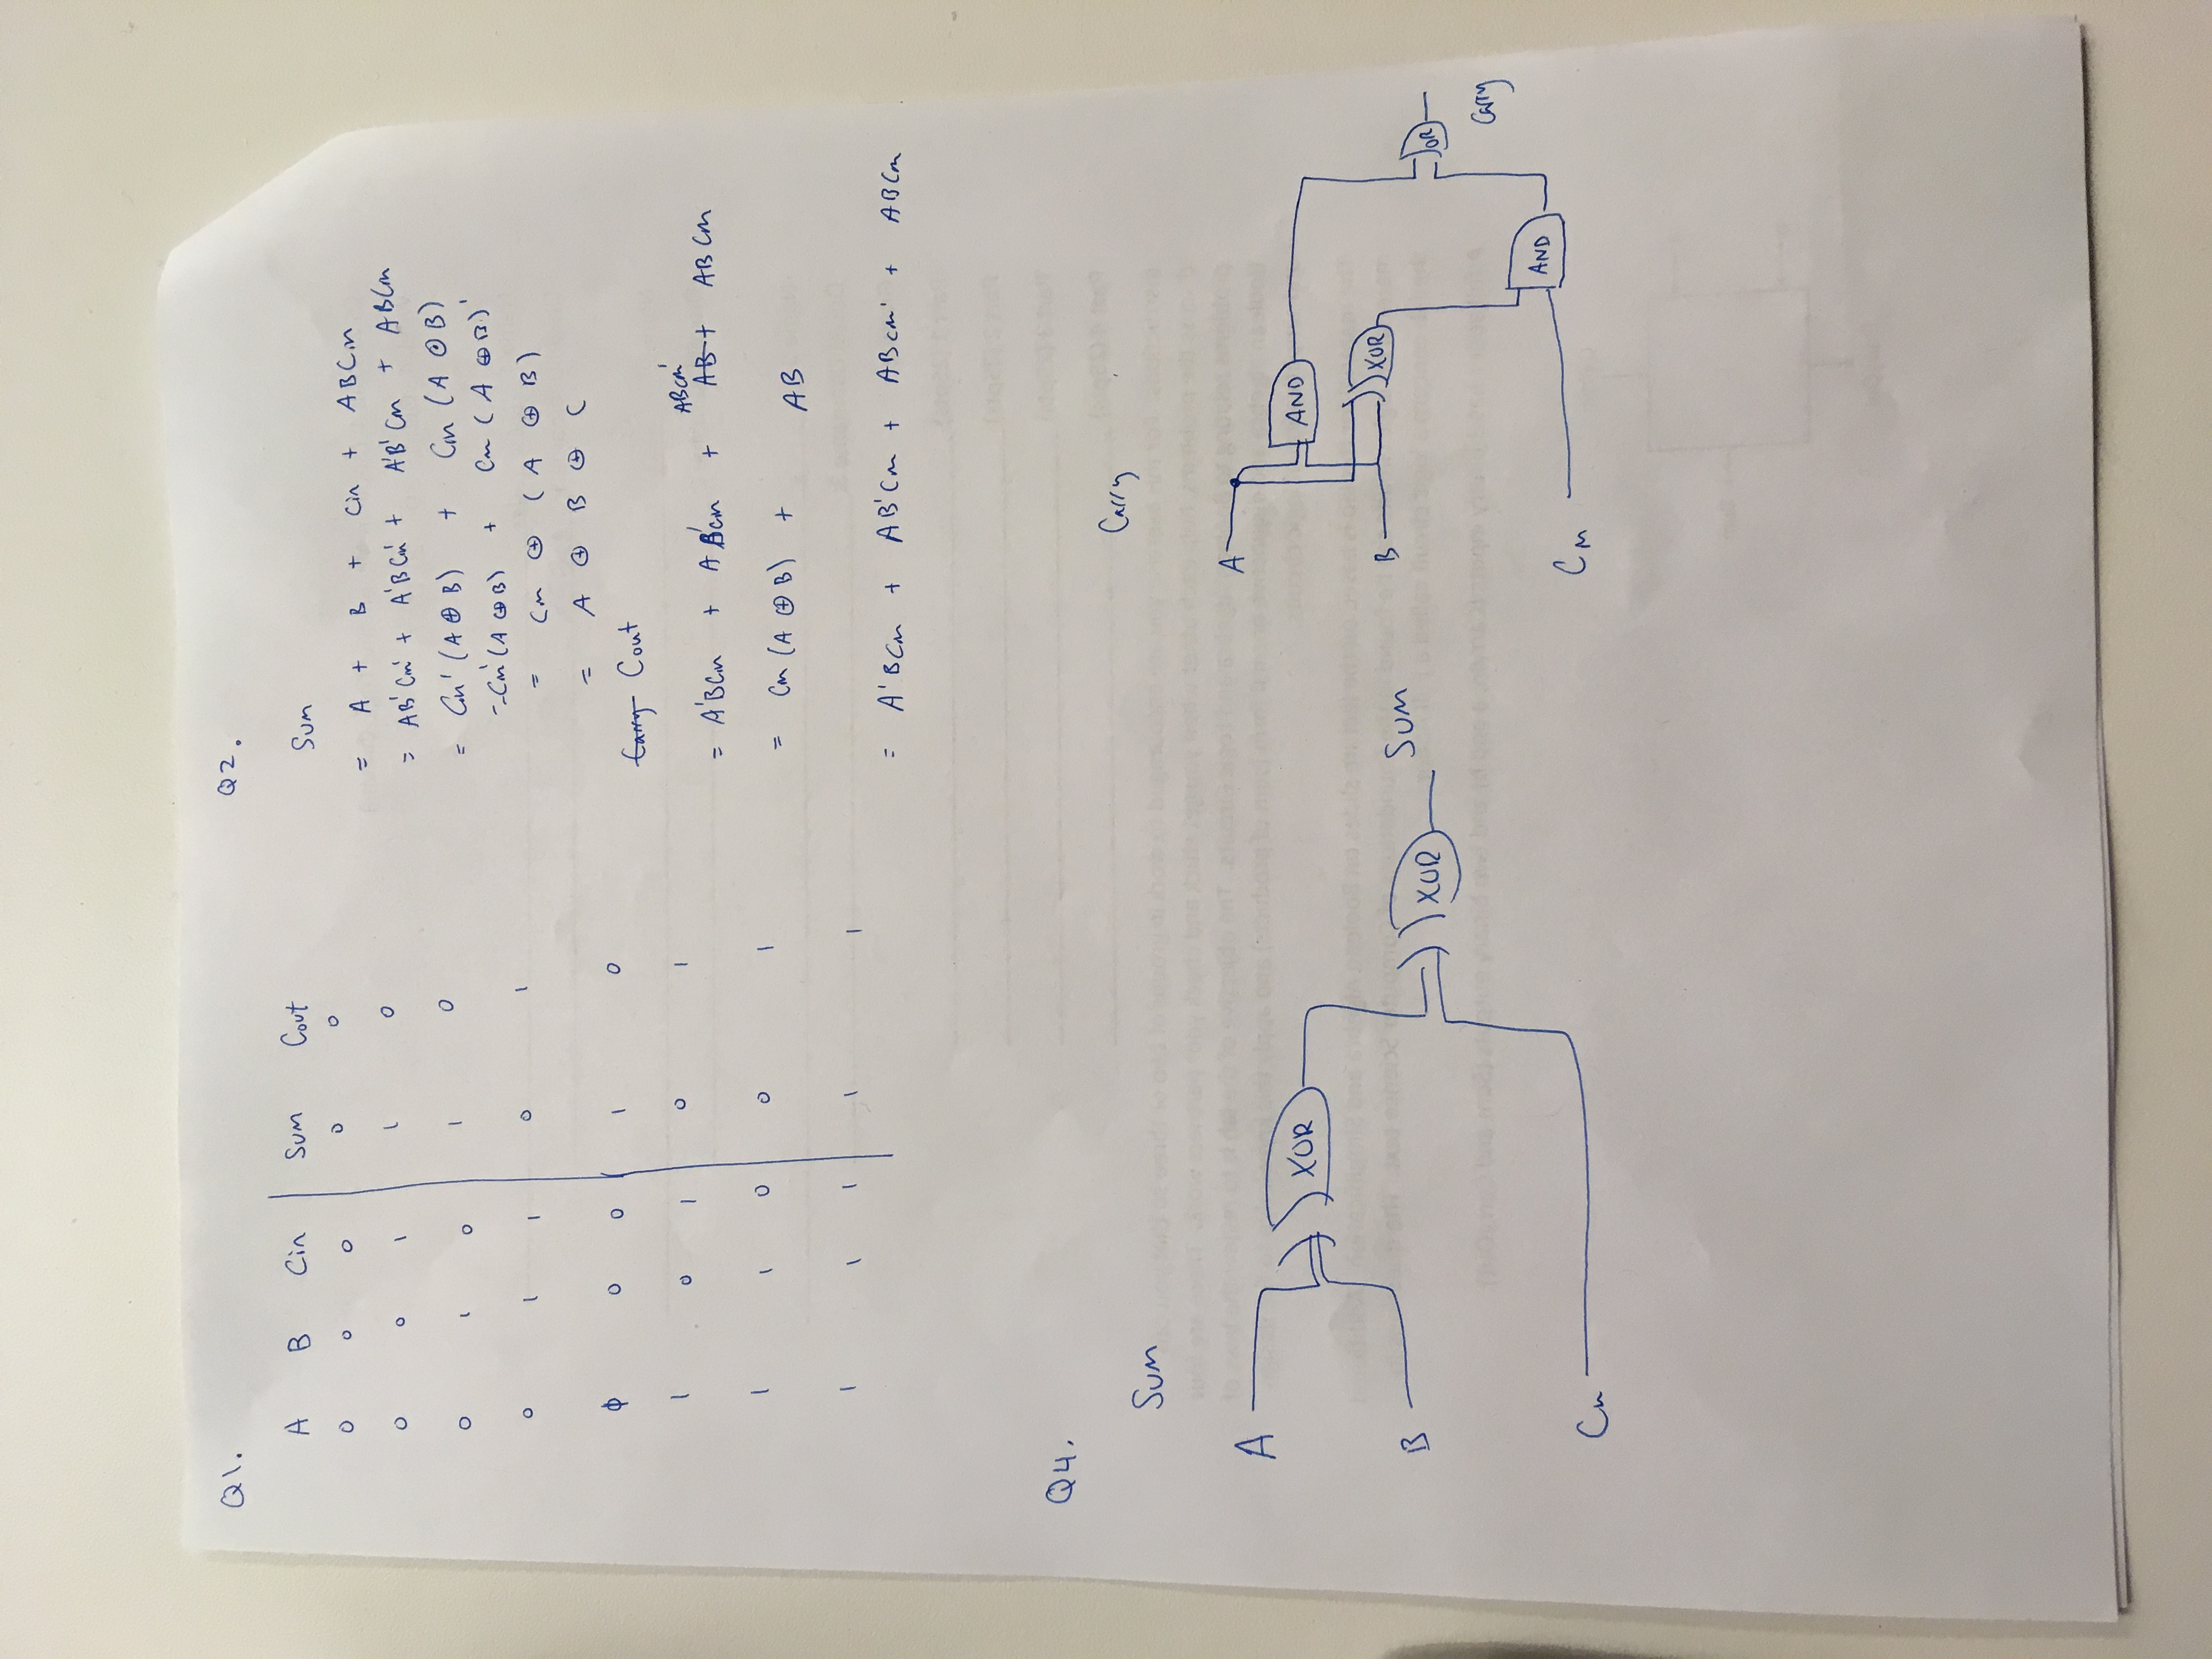 Q1.
A B Cin Sum Cout
0 0 0 0 0
0 0 1 1 0
0 1 0 1 0
0 1 1 0 1
1 0 0 1 0
1 0 1 0 1
1 1 0 0 1
1 1 1 1 1
Q2.
Sum
= A + B + Cin + ABCin
= AB'Cin' + A'BCin' + A'B'Cin + ABCin
= Cin' (A ⊕ B) + Cin (A ⊙ B)
= Cin' (A ⊕ B) + Cin (A ⊕ B)'
= Cin ⊕ (A ⊕ B)
= A ⊕ B ⊕ C
Carry Cout
ABCin'
= A'BCin + AB'Cin + AB + ABCin
= Cin (A ⊕ B) + AB
= A'BCin + AB'Cin + ABCin' + ABCin
Q4.
Sum
A
XOR
B
XOR
Sum
Cin
Carry
A
AND
B
XOR
OR
Carry
AND
Cin